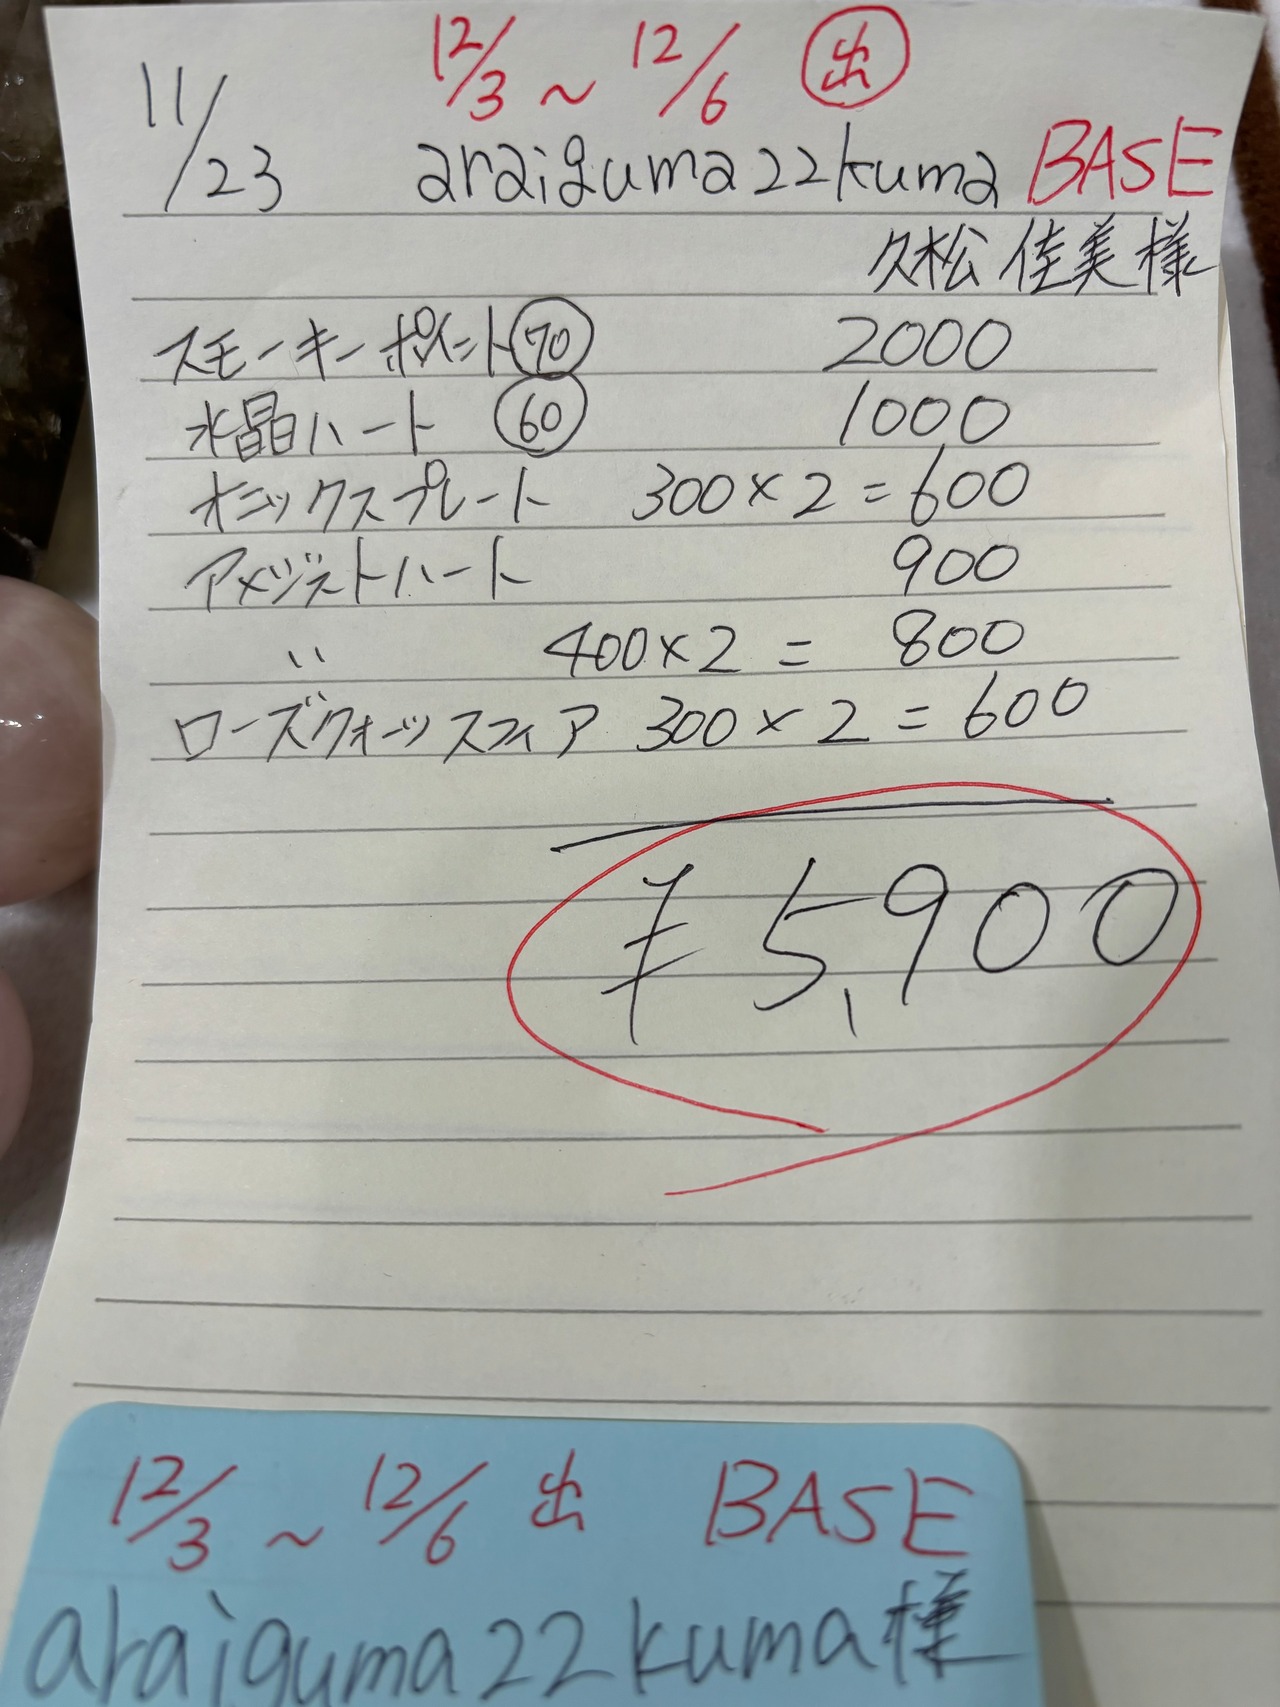 12/3 ~ 12/6 出
11/23 araiguma22kuma BASE
久松 佳美 様
スモーキーポイント 70 2000
水晶ハート 60 1000
オニックスプレート 300×2=600
アメジストハート 900
〃 400×2 = 800
ローズクォーツスフィア 300×2=600
¥5,900
12/3 ~ 12/6 出 BASE
araiguma22kuma様